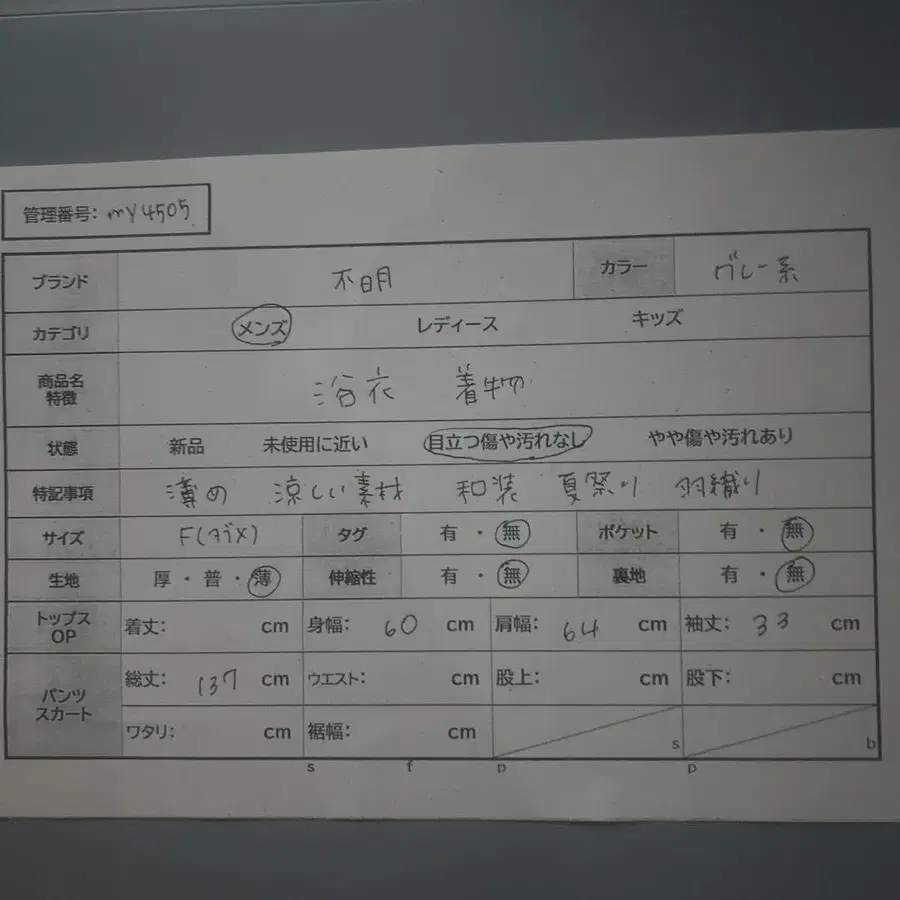 管理番号: my4505
ブランド 不明 カラー グレー系
カテゴリ メンズ レディース キッズ
商品名 特徴 浴衣 着物
状態 新品 未使用に近い 目立つ傷や汚れなし やや傷や汚れあり
特記事項 薄め 涼しい素材 和装 夏祭り 羽織り
サイズ F(タグ×) タグ 有・無 ポケット 有・無
生地 厚・普・薄 伸縮性 有・無 裏地 有・無
トップス OP 着丈: cm 身幅: 60 cm 肩幅: 64 cm 袖丈: 33 cm
パンツ スカート 総丈: 137 cm ウエスト: cm 股上: cm 股下: cm
ワタリ: cm 裾幅: cm s b
s f p p